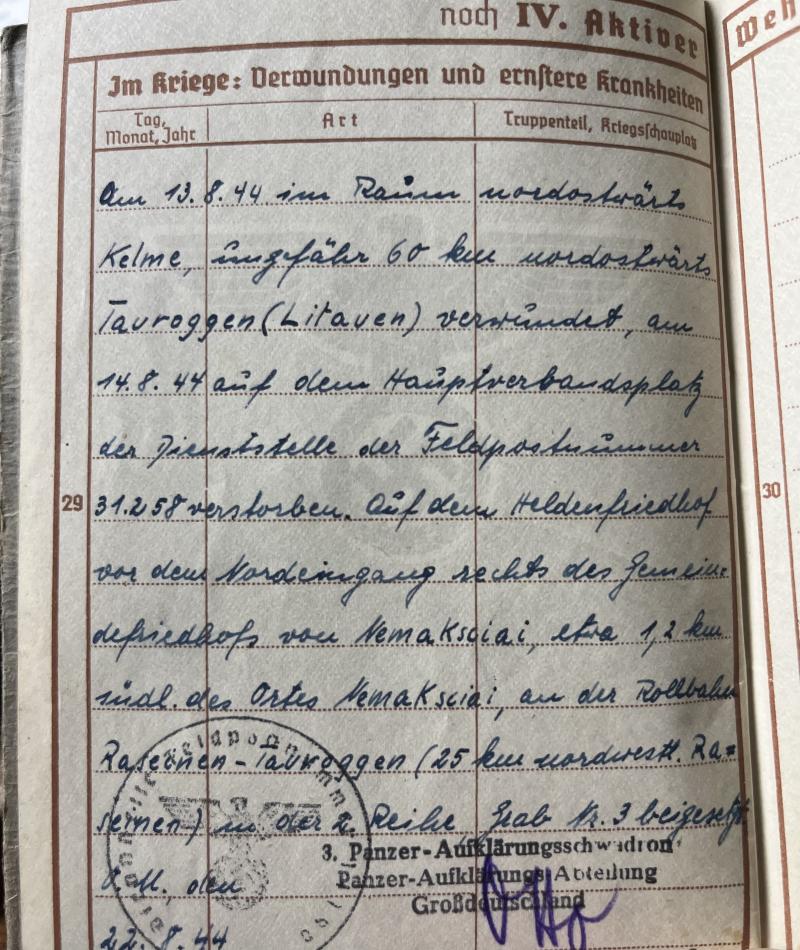 noch IV. Aktiver
Weh
Im Kriege: Verwundungen und ernstere Krankheiten
Tag, Monat, Jahr
Art
Truppenteil, Kriegsschauplatz
Am 13.8.44 im Raum nordostwärts
Kelme, ungefähr 60 km nordostwärts
Tauroggen (Litauen) verwundet, am
14.8.44 auf dem Hauptverbandsplatz
der Dienststelle der Feldpostnummer
31258 verstorben. Auf dem Heldenfriedhof
vor dem Nordeingang rechts des Gemein-
defriedhofs von Nemaksciai, etwa 1,2 km
südl. des Ortes Nemaksciai, an der Rollbahn
Raseinen-Tauroggen (25 km nordwestl. Ra=
seinen) in der 2. Reihe Grab Nr. 3 beigesetzt
O.U. den
22.8.44
3. Panzer-Aufklärungsschwadron
Panzer-Aufklärungs Abteilung
Großdeutschland
29
30